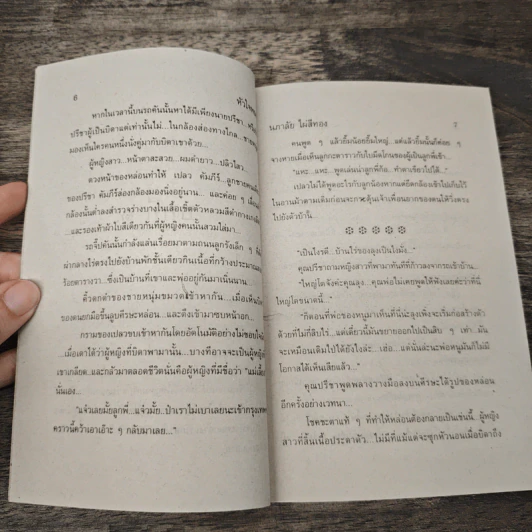 6
หากในเวลานี้บนรถคันนั้นหาได้มีเพียงนายปรีชา...
ปรีชาผู้เป็นบิดาแต่เท่านั้นไม่...ในกล้องส่องทางไกล...
มองเห็นใครคนหนึ่งนั่งคู่มากับบิดาเขาด้วย...
ผู้หญิงสาว...หน้าตาสะสวย...ผมดำยาว...
ดวงหน้าของหล่อนทำให้ เปลว คัมภีรี...ลูกชายคน
ของปรีชา คัมภีรีส่งกล้องมองนิ่งอยู่นาน... และค่อย ๆ
กล้องนั้นต่ำลงสำรวจร่างบางในเสื้อเชิ้ตตัวหลวมสีดำ
...และรองเท้าผ้าใบสีเดียวกันที่ผู้หญิงคนนั้นสวมใส่มา...
รถจี๊ปคันนั้นกำลังแล่นเรื่อยมาตามถนนลูกรังเล็ก ๆ
ผ่ากลางไร่ตรงไปยังบ้านพักชั้นเดียวกินเนื้อที่กว้างประมาณ
ร้อยตารางวา...ซึ่งเป็นบ้านที่เขาและพ่ออยู่กันมาเนิ่นนาน...
คิ้วดกดำของชายหนุ่มขมวดเข้าหากัน...เมื่อเห็น
ของตนยกมือขึ้นลูบศีรษะหล่อน...และดึงเข้ามาซบหน้าอก...
กรามของเปลวขบเข้าหากันโดยอัตโนมัติอย่างไม่ชอบใจ
...เมื่อเดาได้ว่าผู้หญิงที่บิดาพามานั้น...บางทีอาจจะเป็นผู้หญิง
เขาเกลียด...และกลัวมาตลอดชีวิตนั่นคือผู้หญิงที่มีชื่อว่า "แม่เลี้ยง"
นั่นเอง...
"แจ๋วเลยมั้ยลูกพี่...แจ๋วมั้ย...ป๋าเราไม่เบาเลยนะเข้ากรุงเทพ
คราวนี้คว้าเอาเอ๊าะ ๆ กลับมาเลย..."
นภาลัย ไผ่สีทอง
7
คนพูด ๆ แล้วยิ้มน้อยยิ้มใหญ่...แต่แล้วยิ้มนั้นก็ค่อย ๆ
จางหายเมื่อเห็นลูกตะดาวกับใบมีดโกนของผู้เป็นลูกพี่เข้า...
"แหะ...แหะ...พูดเล่นน่าลูกพี่ก้อ...ทำตาเขียวไปได้..."
เปลวไม่ได้พูดอะไรกับลูกน้องหากแต่ยึดกล้องเข้าไปเก็บไว้
ในถานม้าตามเดิมก่อนจะกระตุ้นเจ้าเพื่อนยากของตนให้วิ่งตรง
ไปยังตัวบ้าน...
"เป็นไงรตี...บ้านไร่ของลุงเป็นไงมั่ง..."
คุณปรีชาถามผู้หญิงสาวที่พามาทันทีที่ก้าวลงจากรถเข้าบ้าน...
"ใหญ่โตจังค่ะคุณลุง...คุณพ่อไม่เคยพูดให้ฟังเลยค่ะว่าที่นี่
ใหญ่โตขนาดนี้..."
"ก็ตอนที่พ่อของหนูมาเห็นที่นี่น่ะลุงเพิ่งจะเริ่มก่อสร้างตัว
ด้วยที่ไม่กี่สิบไร่...แต่เดี๋ยวนี้มันขยายออกไปเป็นสิบ ๆ เท่า...มัน
จะเหมือนเดิมไปได้ยังไงล่ะ...เฮ้อ...แต่นั่นล่ะนะพ่อหนูมันก็ไม่มี
โอกาสได้เห็นเสียแล้ว..."
คุณปรีชาพูดพลางวางมือลงบนศีรษะได้รูปของหล่อน
อีกครั้งอย่างเวทนา...
โชคชะตาแท้ ๆ ที่ทำให้หล่อนต้องกลายเป็นเช่นนี้ ผู้หญิง
สาวที่สิ้นเนื้อประดาตัว...ไม่มีที่แม้แต่จะซุกหัวนอนเมื่อบิดาถึง